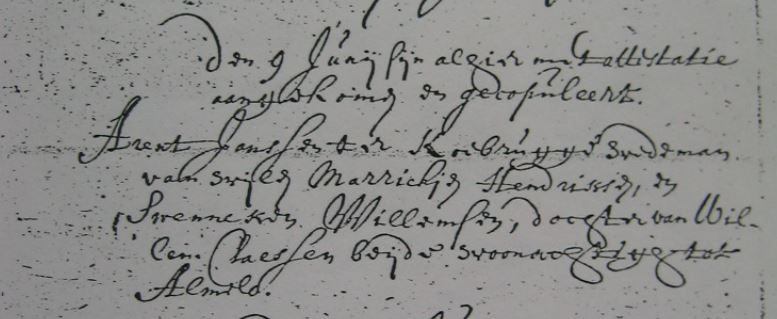 den 9 Junij sijn alhier met attestatie
aangekomen en gecopuleert.
Arent Janssen ter Koebrugge wedeman
van wijlen Marrichjen Hendrissen, en
Swenneken Willemsen, dochter van Wil-
lem Claessen beijde woonachtigh tot
Almelo.